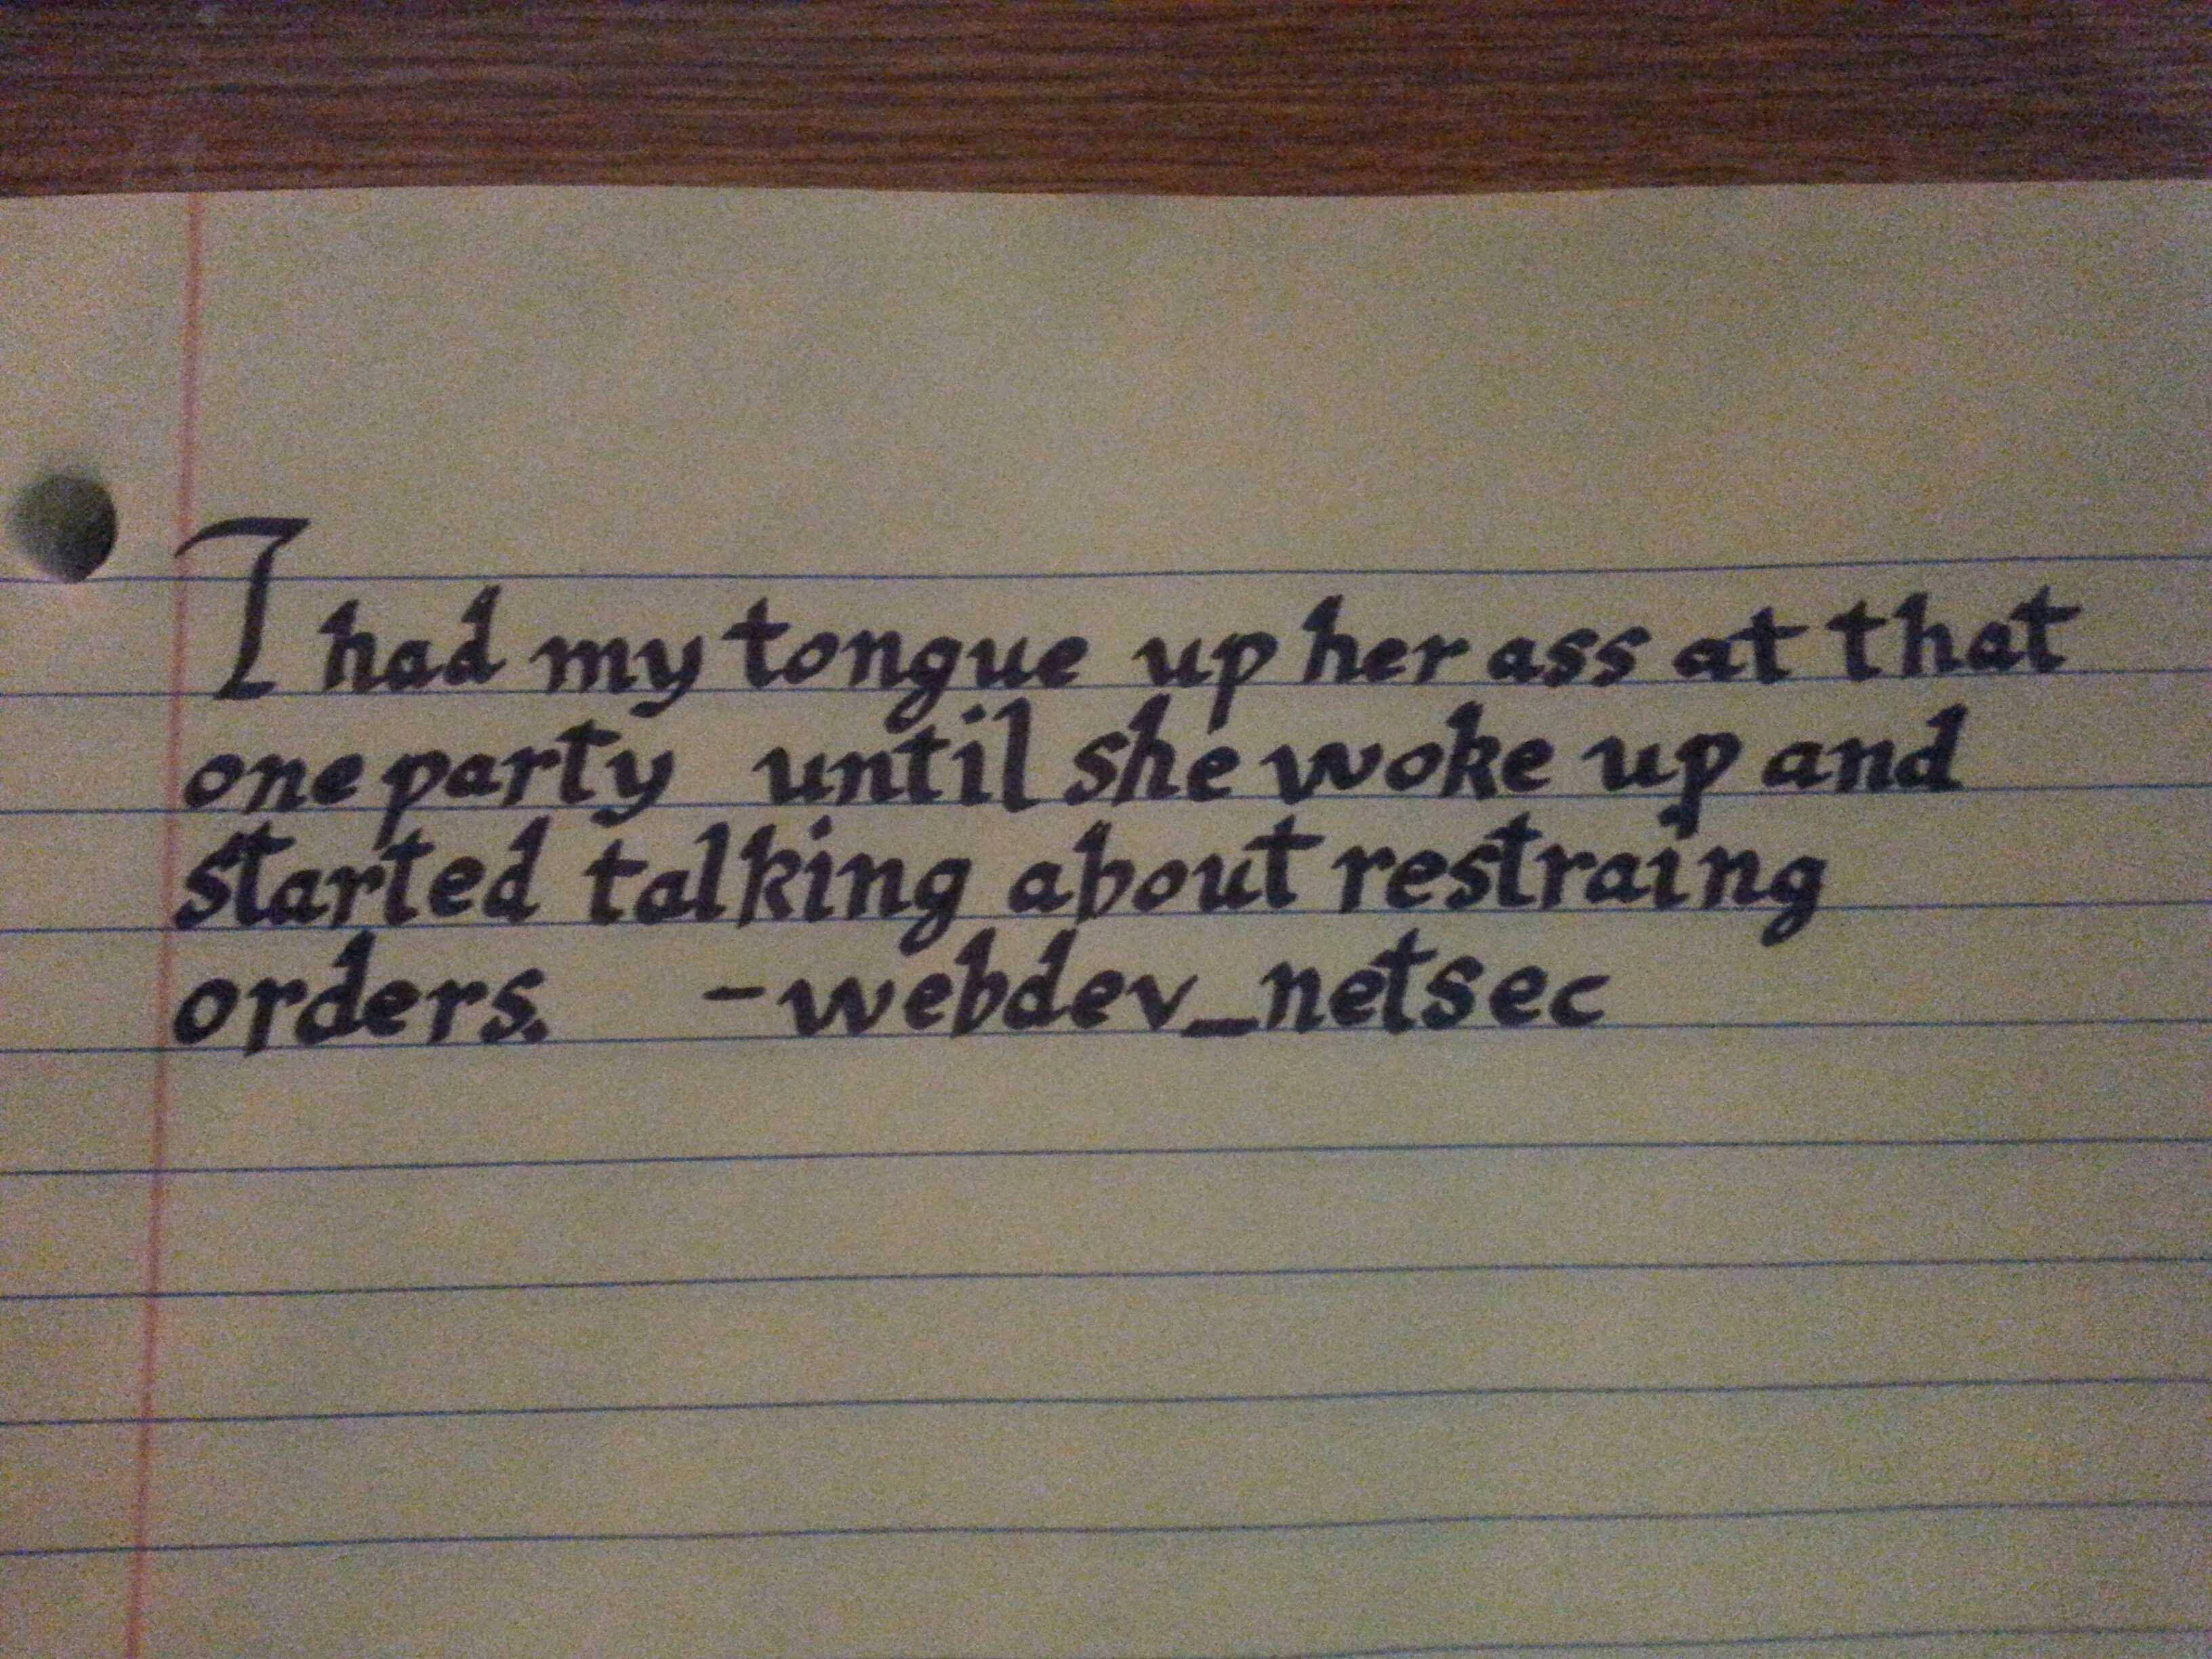 I had my tongue up her ass at that
one party until she woke up and
started talking about restraing
orders. -webdev_netsec